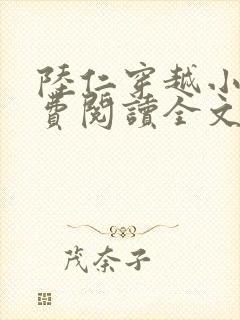 陸仁穿越小
費閱讀全文
茂奈子